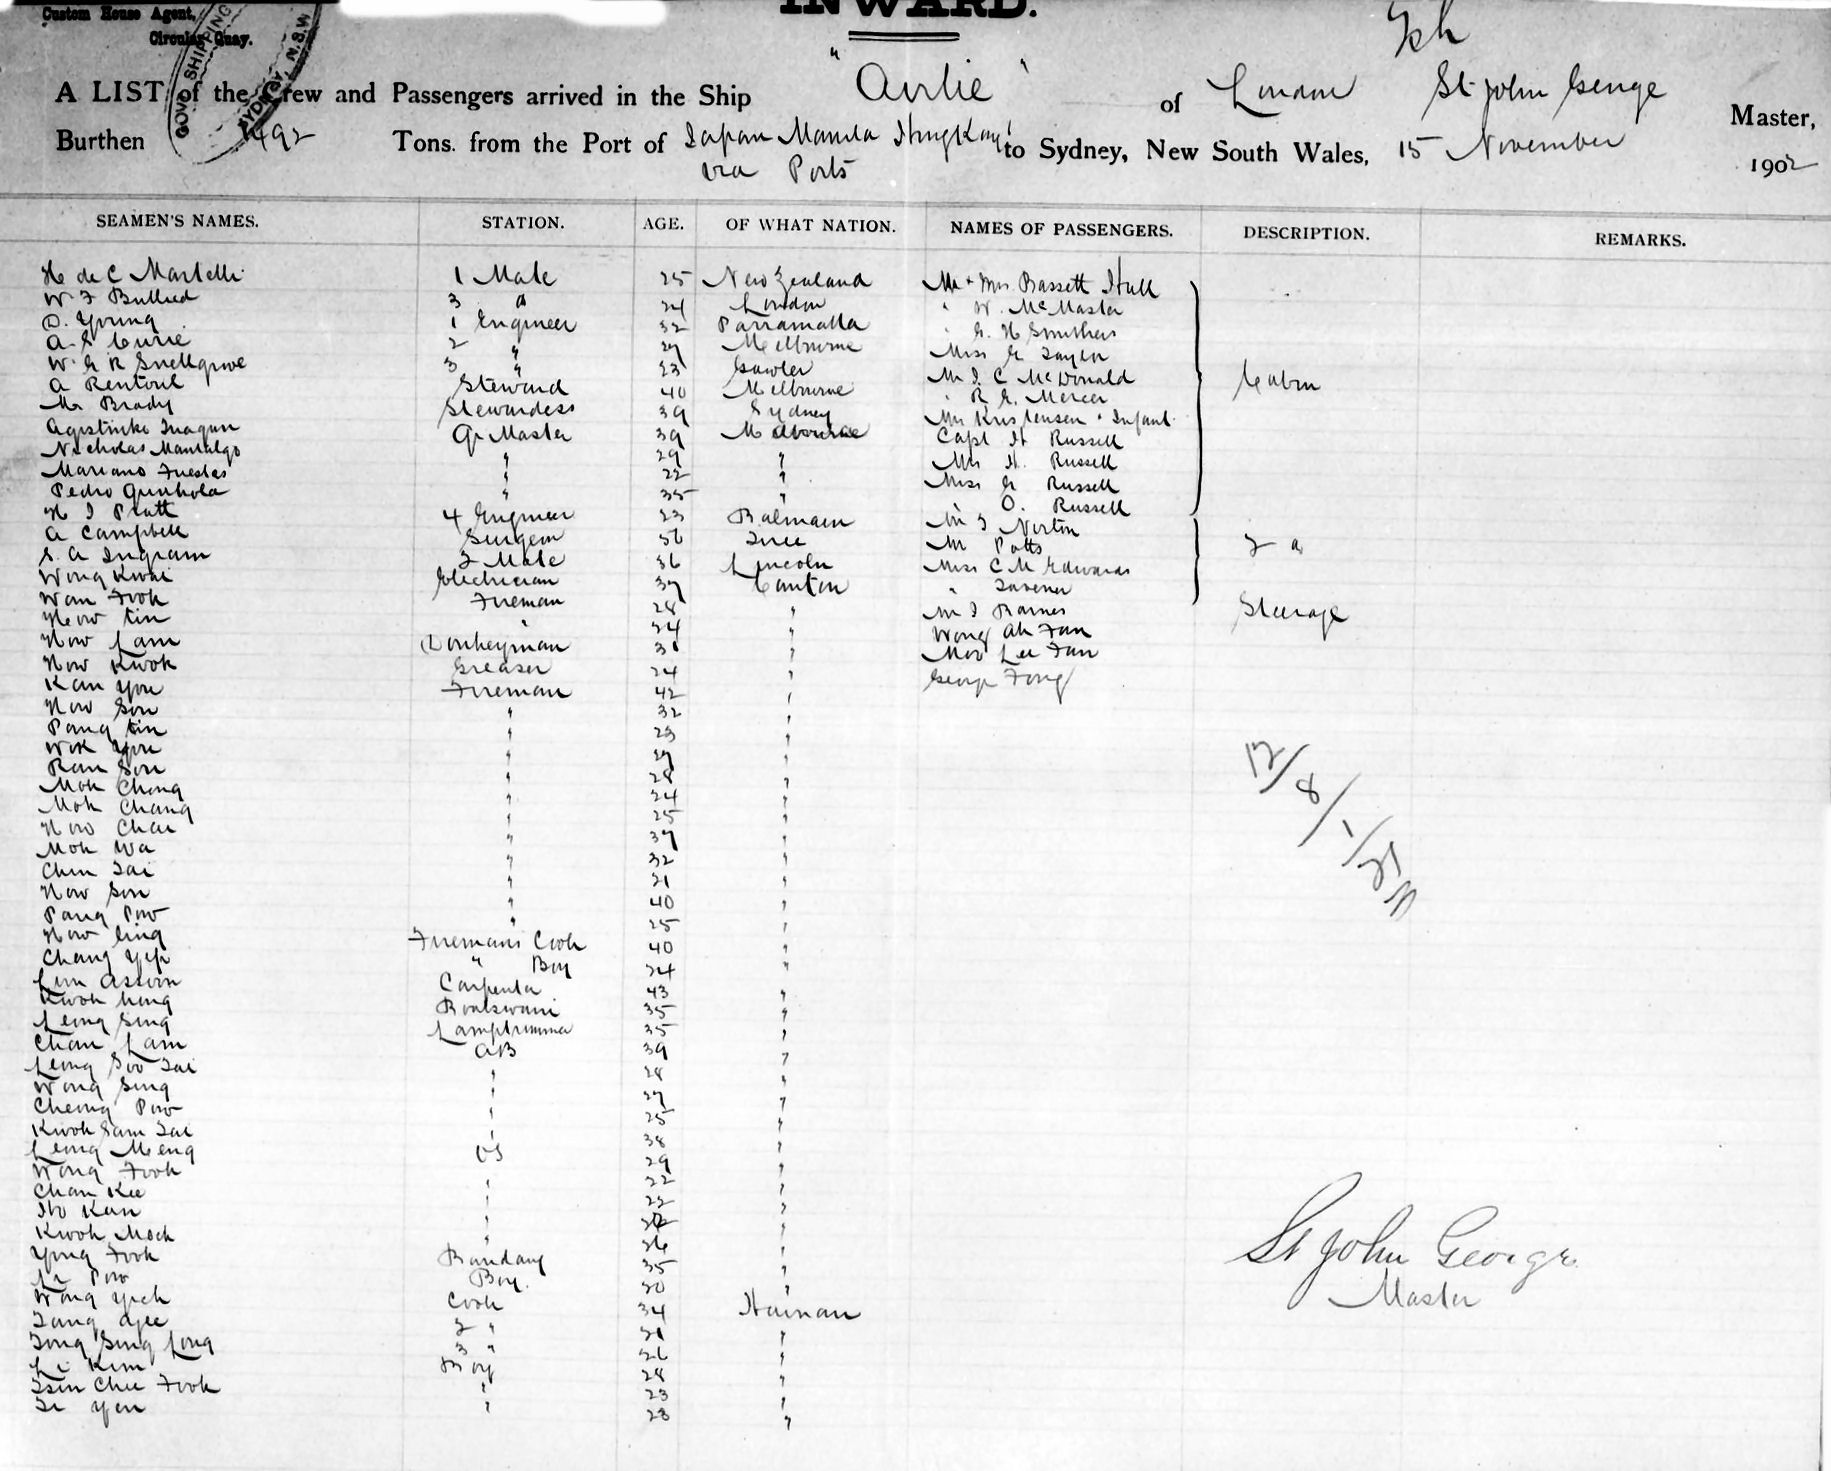 Custom House Agent,
Circular Quay.
GOVT SHIPPING
SYDNEY N.S.W
INWARD.
A LIST of the Crew and Passengers arrived in the Ship "Airlie" of London St John George Master,
Burthen 1492 Tons. from the Port of Japan Manila HongKong to Sydney, New South Wales, 15 November 1902
via Ports
SEAMEN'S NAMES. STATION. AGE. OF WHAT NATION. NAMES OF PASSENGERS. DESCRIPTION. REMARKS.
H de C Martelli 1 Mate 25 New Zealand Mr & Mrs Bassett Hull
W F Bullied 3 " 24 London " W. McMaster
D. Young 1 Engineer 32 Parramatta " G. H Smithers
A. S Currie 2 " 27 Melbourne Miss G Taylor
W. G R Snellgrove 3 " 23 Gawler Mr J. C McDonald Cabin
A Rentoul Steward 40 Melbourne " R G. Mercer
M Brady Stewardess 39 Sydney Mrs Kristensen & Infant
Qr Master 39 Melbourne Capt H Russell
Nicholas " 29 " Mrs H. Russell
Mariano " 22 " Miss G Russell
Pedro " 35 " " O. Russell
H J Pratt 4 Engineer 23 Balmain Norton
A Campbell Surgeon Mr Potts 2 "
S. A Ingram 2 Mate 36 Lincoln Miss C M Edwards
Wong Kwai Electrician 37 Canton "
Wan Fook Fireman 28 " Mr J Barnes Steerage
How tin " 24 " Wong Ah Fan
How Lam Donkeyman " Lee Fan
How Kwok Greaser 24 " George Fong
Kan You Fireman 42 "
How Son " 32 "
Pang tin " 23 "
Wok You " 27 "
Ran Son " 28 "
Mok Chong " 24 "
Mok Chang " 25 "
How Chai " 37 "
Mok Wa " 32 "
Chin Tai " 21 "
How Son " 40 "
Pang Pow " 25 "
How Ling Firemans Cook 40 "
Chang Yip " Boy 24 "
Lum Assoon Carpenter 43 "
Kwok hung Boatswain 35 "
Leong Sing Lamptrimmer 35 "
Chan Lam AB 39 "
Leong Soo Tai " 28 "
Wong Sing " 27 "
Cheong Pow " 25 "
Kwok Sam Tai " 38 "
Leong Meng OS 29 "
Wong Fook " 22 "
Chan Kee " 22 "
Ho Kan " "
Kwok Mock " 26 "
Yong Fook 35 "
Li Pow Boy. 30 "
Wong Yick Cook 34 Hainan
Tang Ajee 2 " "
Tong Sing Long 3 " 26 "
Li Kim Boy 28 "
Tsin Chee Fook " 23 "
Yen " 23 "
12/8/1/21
St John George
Master